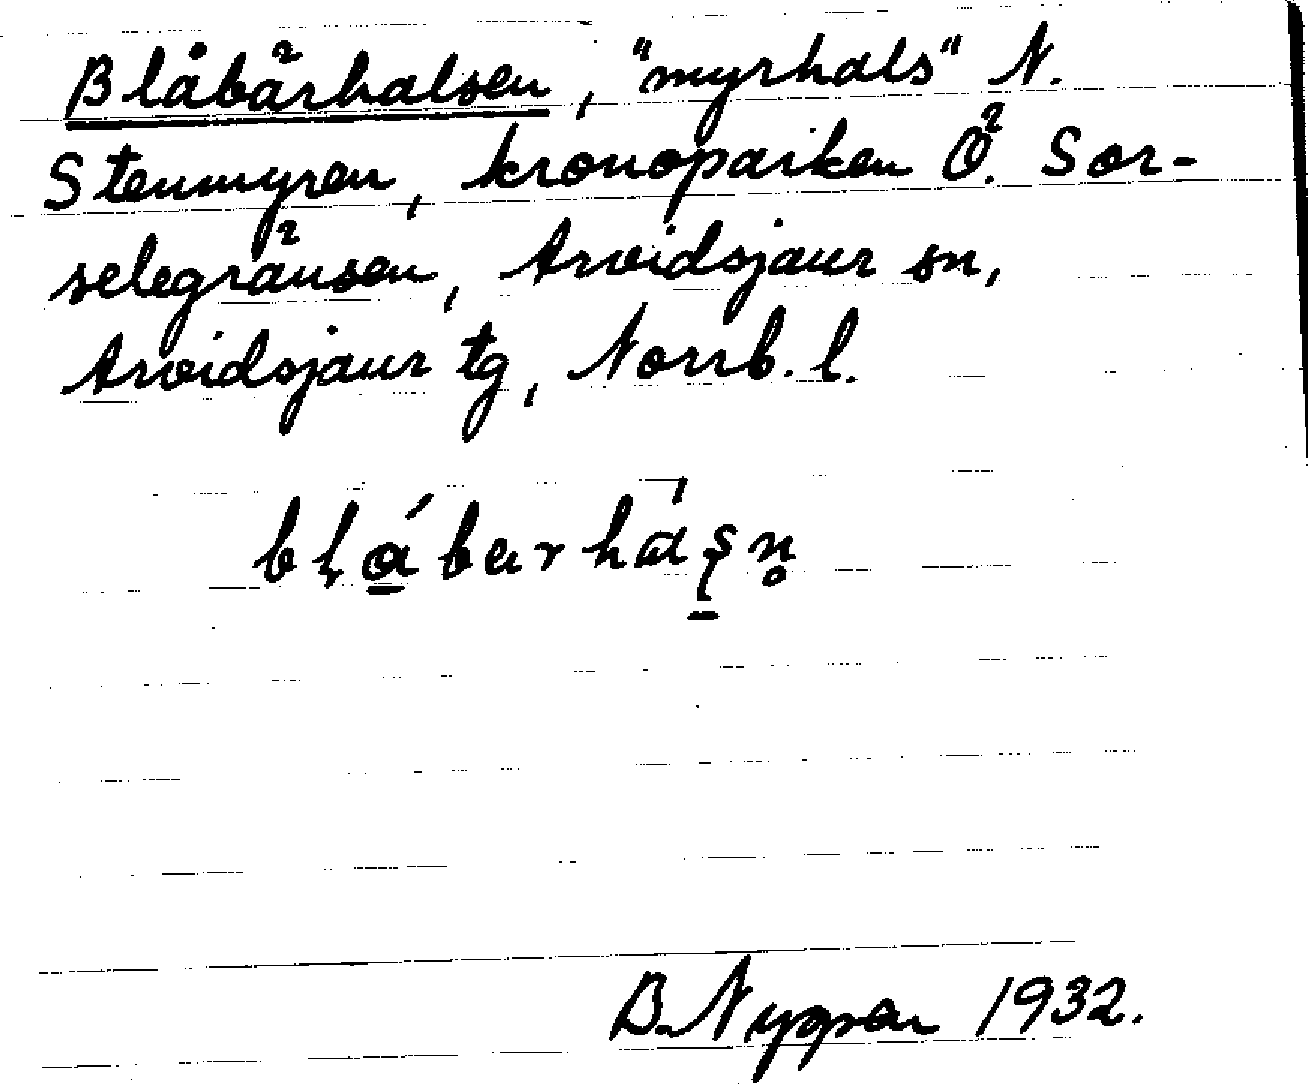 Blåbärhalsen, "myrhals" N.
Stenmyren, kronoparken Ö. Sor-
selegränsen, Arvidsjaur sn,
Arvidsjaur tg, Norrb. l.
B. Nygren 1932.